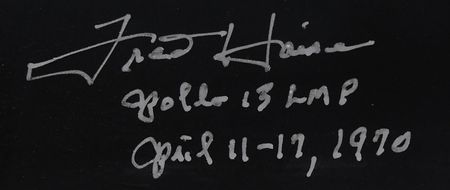 Fred Haise
Apollo 13 LMP
April 11-17, 1970